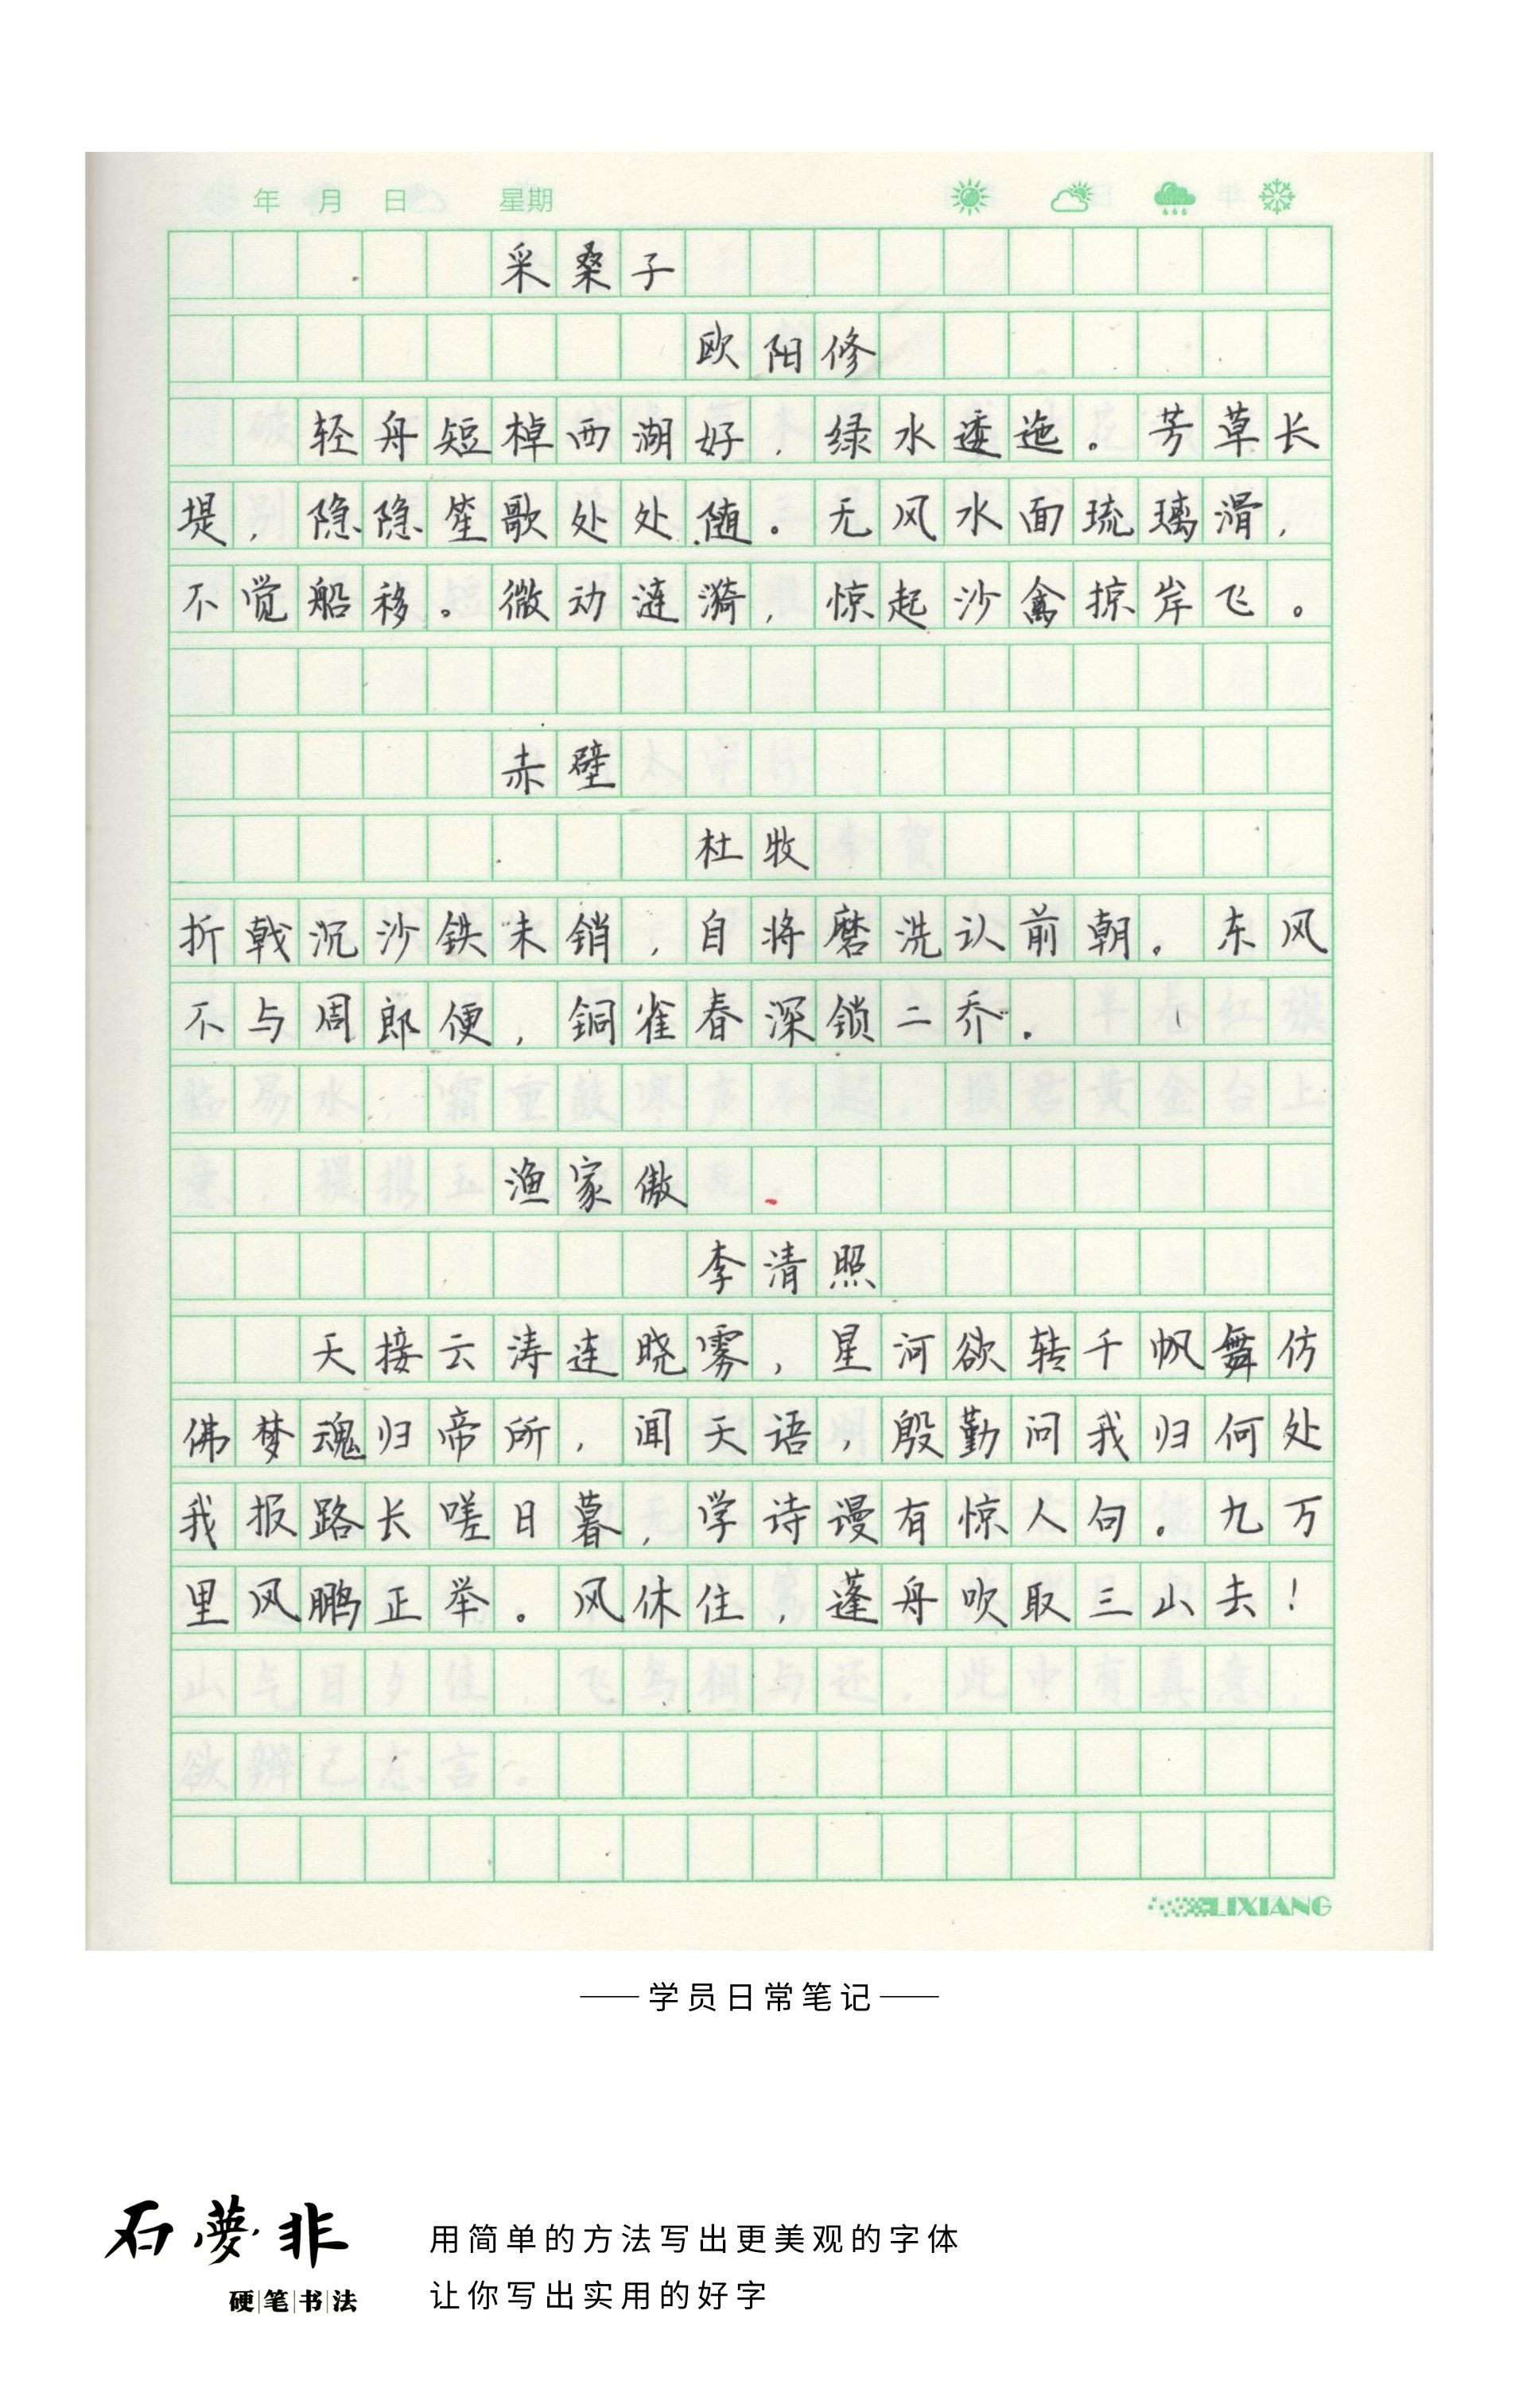 年 月 日 星期
采桑子
欧阳修
轻舟短棹西湖好，绿水逶迤。芳草长
堤，隐隐笙歌处处随。无风水面琉璃滑，
不觉船移。微动涟漪，惊起沙禽掠岸飞。
赤壁
杜牧
折戟沉沙铁未销，自将磨洗认前朝。东风
不与周郎便，铜雀春深锁二乔.
渔家傲
李清照
天接云涛连晓雾，星河欲转千帆舞仿
佛梦魂归帝所，闻天语，殷勤问我归何处
我报路长嗟日暮，学诗谩有惊人句。九万
里风鹏正举。风休住，蓬舟吹取三山去！
LIXIANG
学员日常笔记
石夢非
硬笔书法
用简单的方法写出更美观的字体
让你写出实用的好字